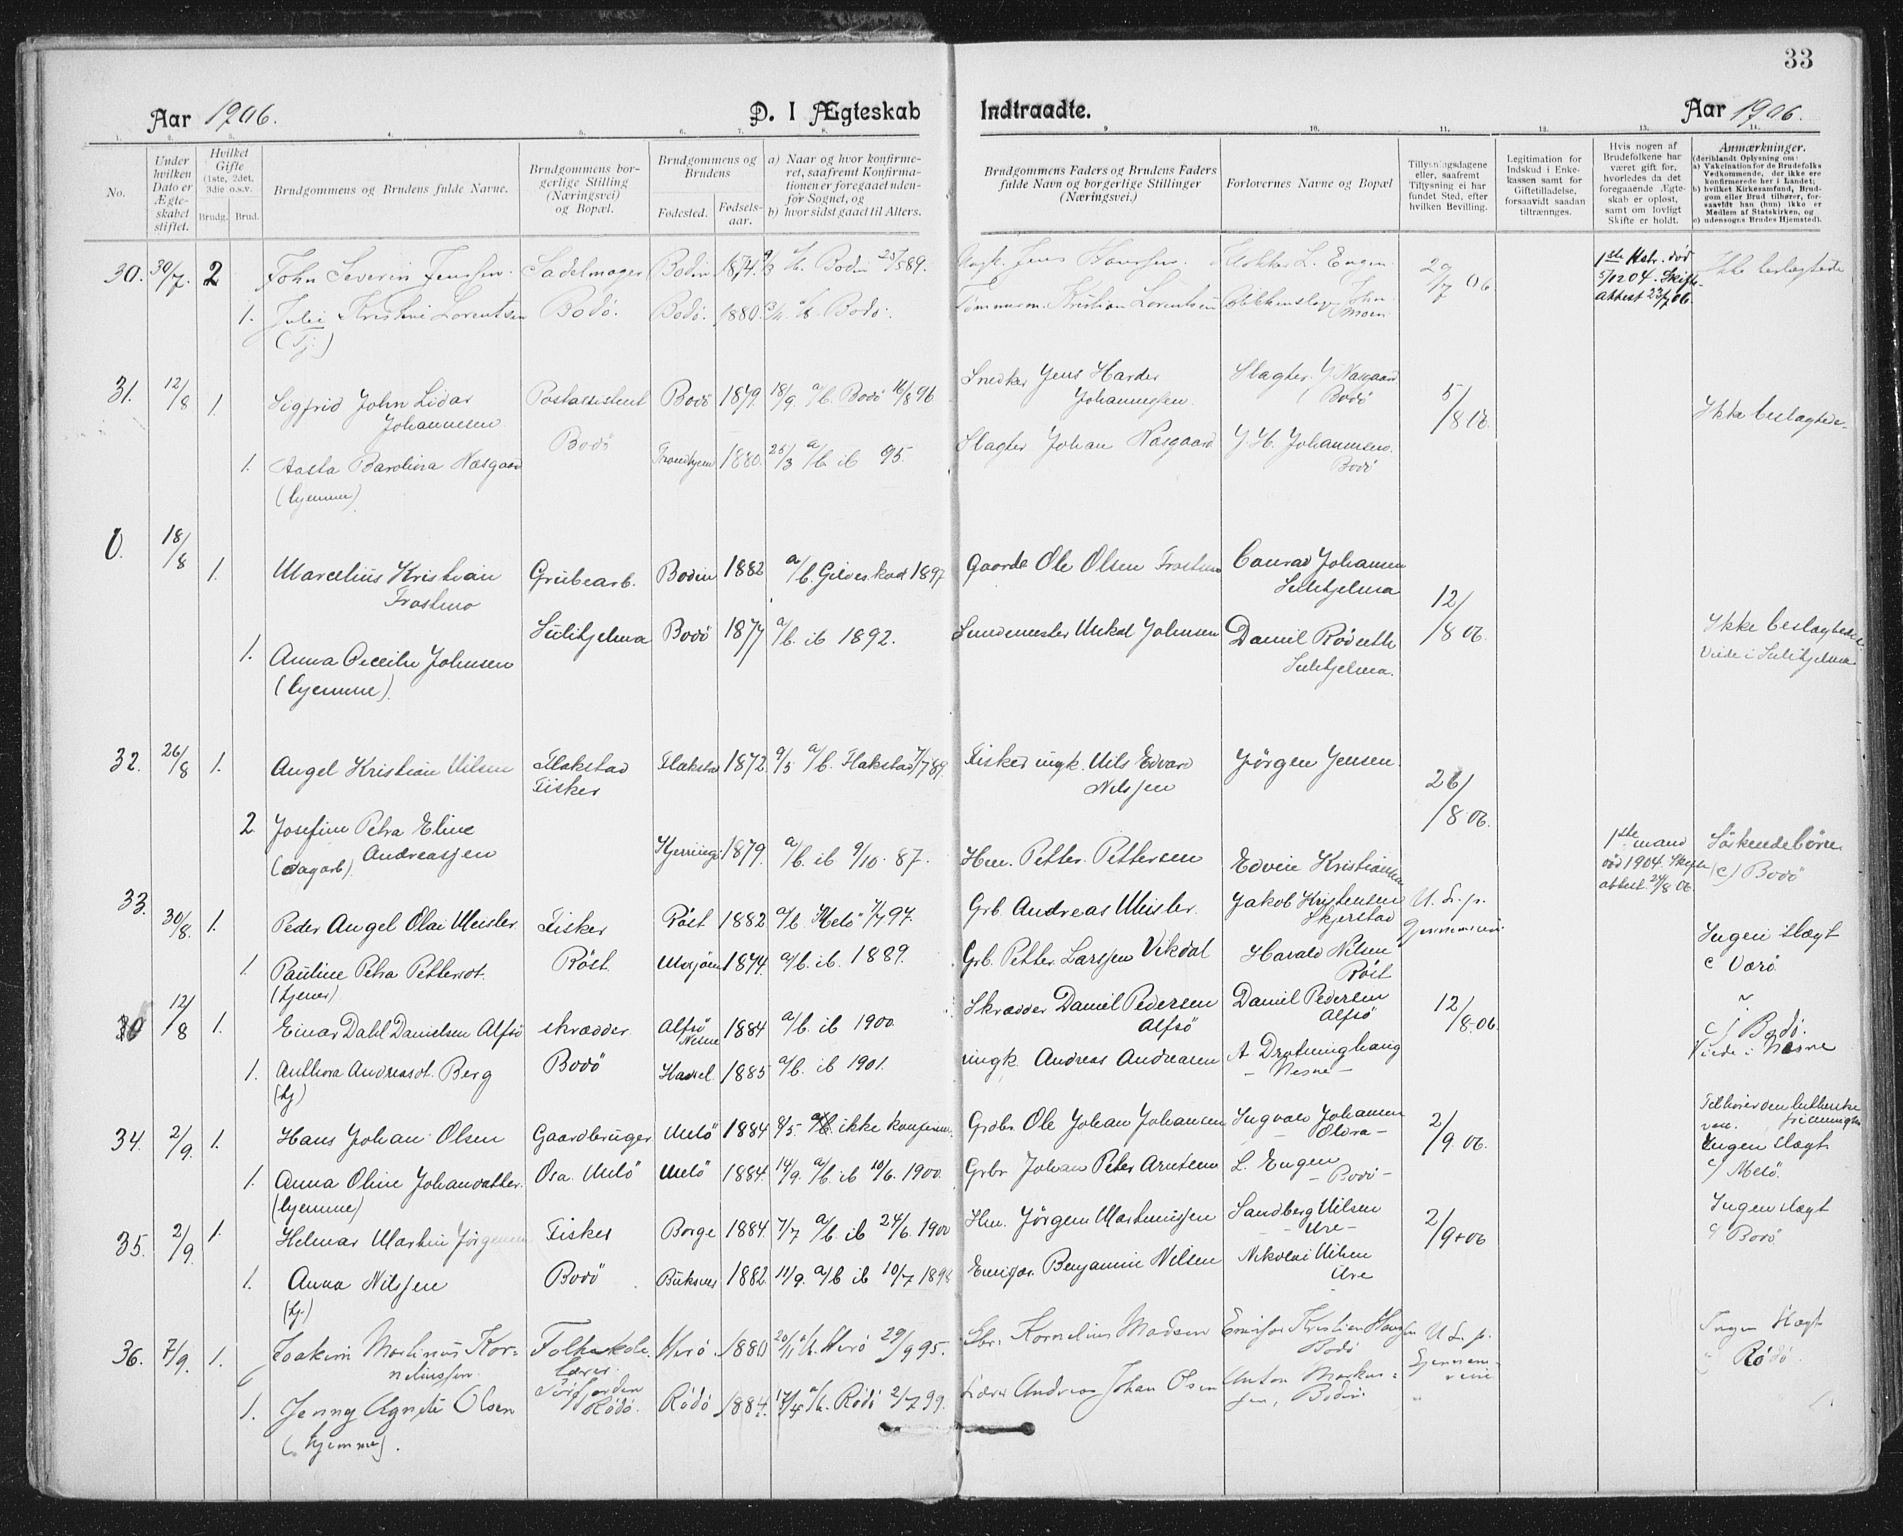 33
Aar 1906.
D. I Ægteskab
Indtraadte.
Aar 1906.
1. 2. 3. 4. 5. 6. 7. 8. 9. 10. 11. 12. 13. 14.
No.
Under hvilken Dato er Ægteskabet stiftet.
Hvilket Gifte (1ste, 2det, 3die o.s.v.
Brudg. Brud.
Brudgommens og Brudens fulde Navne.
Brudgommens borgerlige Stilling (Næringsvei) og Bopæl.
Brudgommens og Brudens
Fødested. Fødselsaar.
a) Naar og hvor konfirmeret, saafremt Konfirmationen er foregaaet udenfor Sognet, og
b) hvor sidst gaaet til Alters.
Brudgommens Faders og Brudens Faders fulde Navn og borgerlige Stillinger (Næringsvei.)
Forlovernes Navne og Bopæl
Tillysningsdagene eller, saafremt Tillysning ei har fundet Sted, efter hvilken Bevilling.
Legitimation for Indskud i Enkekassen samt for Giftetilladelse, forsaavidt saadan tiltrænges.
Hvis nogen af Brudefolkene har været gift før, hvorledes da det foregaaende Ægteskab er opløst, samt om lovligt Skifte er holdt.
Anmærkninger.
(deriblandt Oplysning om:
a) Vakcination for de Brudefolks Vedkommende, der ikke ere konfirmerede her i Landet;
b) hvilket Kirkesamfund, Brudgom eller Brud tilhører, forsaavidt han (hun) ikke er Medlem af Statskirken, og
c) udensogns Brudes Hjemsted).
30. 30/7. 2 John Severin Jenssen. Sadelmager Bodin 1874. a/b. Bodin 25/5 89. Jens Hanssen. Klokker L. Engen. 29/7 06 1ste Hstr. død 5/12 04. Skifteattest 23/7 06. Ikke beslægtede
1. Julie Kristine Lorentsen Bodø. Bodø. 1880. a/b. Bodø. Tømmerm. Kristian Lorentsen John Moen
(Tj.)
31. 12/8 1. Sigfrid John Lidar Postassistent Bodö 1879. 18/9. a/b. Bodö 16/8 96 Snedker Jens Harder Slagter J. Næsgaard 5/8 06.
Johannesen Johannesen Bodö Ikke beslægtede.
1. Aasta Barolina Næsgaard Bodö Trondhjem 1880. 25/3 a/b. ib 95. Slagter Johan Næsgaard J. H. Johannesen.
(hjemme) Bodö
0. 18/8 1. Marcelius Kristian Grubearb. Bodin 1882 a/b. Gildeskaal 1897 Gaardb Ole Olsen Frostmo Conrad Johansen 12/8 06.
Frostmo Sulitjelma
1. Anna Cecilie Johnsen Sulitjelma Bodö 1877 a/b. ib 1892. Smedmester Mikal Johnsen Daniel Røderth Ikke beslægtede
(hjemme). Sulitjelma. Viede i Sulitjelma
32. 26/8 1. Angel Kristian Nilsen Flakstad Flakstad 1872. 9/5 a/b. Flakstad 7/7 89. Fisker ingk. Nils Edvard Jörgen Jensen. 26/8 06.
Fisker Nilsjen
2 Josefine Petra Eline Kjerringö 1879. a/b. ib 9/10. 87. Hm. Petter Pettersen Edvin Kristiansen 1ste mand Söskendebörn
(dagarb). Andreasjen død 1904. Skifteattest 24/8 06. (c) Bodö
33. 30/8. 1. Peder Angel Olai Meisler. Fisker Röst 1882 a/b. Melö 7/7 97. Grb. Andreas Meisler. Jakob Kristensen U. L. p.
Skjerstad Gjennemreise Ingen slægt
1. Pauline Petra Pettersdt. Röst. Mosjöen 1874. a/b. ib. 1889. Grb. Petter Larsjen Vikdal Harald Nilsen c Værö
(tjener) Röst
30 12/8 1. Einar Dahl Danielsen Alfsö skrædder Alfsö Nesne 1884 a/b. ib 1900. Skrædder Daniel Pedersen Daniel Pedersen 12/8. 06.
Alfsö Alfsö c/ Bodö.
1. Anthora Andreasdt. Berg Bodö Hassel 1885 a/b. ib 1901. ingk. Andreas Andreasen A. Drotninghaug Viede i Nesne
(tj) – Nesne –
34. 2/9. 1. Hans Johan Olsen Gaardbruger Melö 1884 8/5. a/b. ikke konfirm. Grdbr. Ole Johan Johansen Ingvald Johansen 2/9 06. Tilhører den lutherske frimenighed
Ingen slægt
1. Anna Oline Johansdatter. Osa. Melö Melö 1884. 14/9. a/b. ib 10/6. 1900. Grbr Johan Peter Arntsen L. Engen c/ Melö.
(hjemme) – Bodö –
35. 2/9. 1. Helmar Martin Jörgensen Fisker Borge 1884. 7/7 a/b. ib 24/6. 1900 Hm. Jörgen Martinusjen Sandberg Nilsen 2/9 06 Ingen slægt
– Ure – c/ Bodö
1. Anna Nilsjen Bodö Buksnes 1882 11/9. a/b ib 10/7 1898 Emigr. Benjamin Nilsen Nikolai Nilsen
(tj.) Ure
36. 7/9. 1. Joakim Martinus Kornelinssen. Folkeskolelærer Herö. 1880 20/11 a/b. Herö 29/9 95. Gbr. Kornelius Madsen Kristian Hansen U. L. p. Ingen slægt
Bodö Gjennemreise c/ Rödö.
1. Jenny Agnete Olsen Rödö. Rödö 1884. 17/4 a/b. Rödö 2/7 99. Lærer Andreas Johan Olsen Anton Markussen, Bodin
(hjemme).